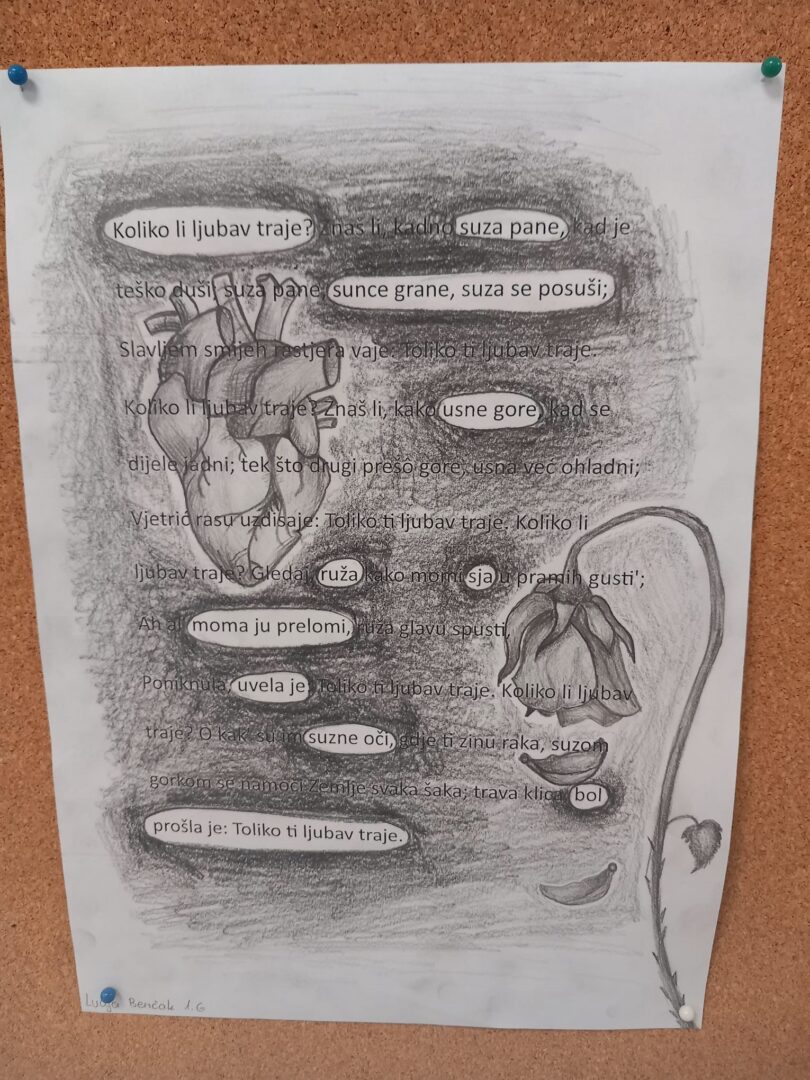 Koliko li ljubav traje? Znaš li, kadno suza pane, kad je
teško duši; suza pane, sunce grane, suza se posuši;
Slavljem smijeh rastjera vaje: Toliko ti ljubav traje.
Koliko li ljubav traje? Znaš li, kako usne gore, kad se
dijele jadni; tek što drugi prešo gore, usna već ohladni;
Vjetrić rasu uzdisaje: Toliko ti ljubav traje. Koliko li
ljubav traje? Gledaj, ruža kako momi sja u pramih gusti';
Ah al' moma ju prelomi, ruža glavu spusti,
Poniknula, uvela je: Toliko ti ljubav traje. Koliko li ljubav
traje? O kak' su im suzne oči, gdje ti zinu raka, suzom
gorkom se namoči Zemlje svaka šaka; trava klica, bol
prošla je: Toliko ti ljubav traje.
Benčok 1.G